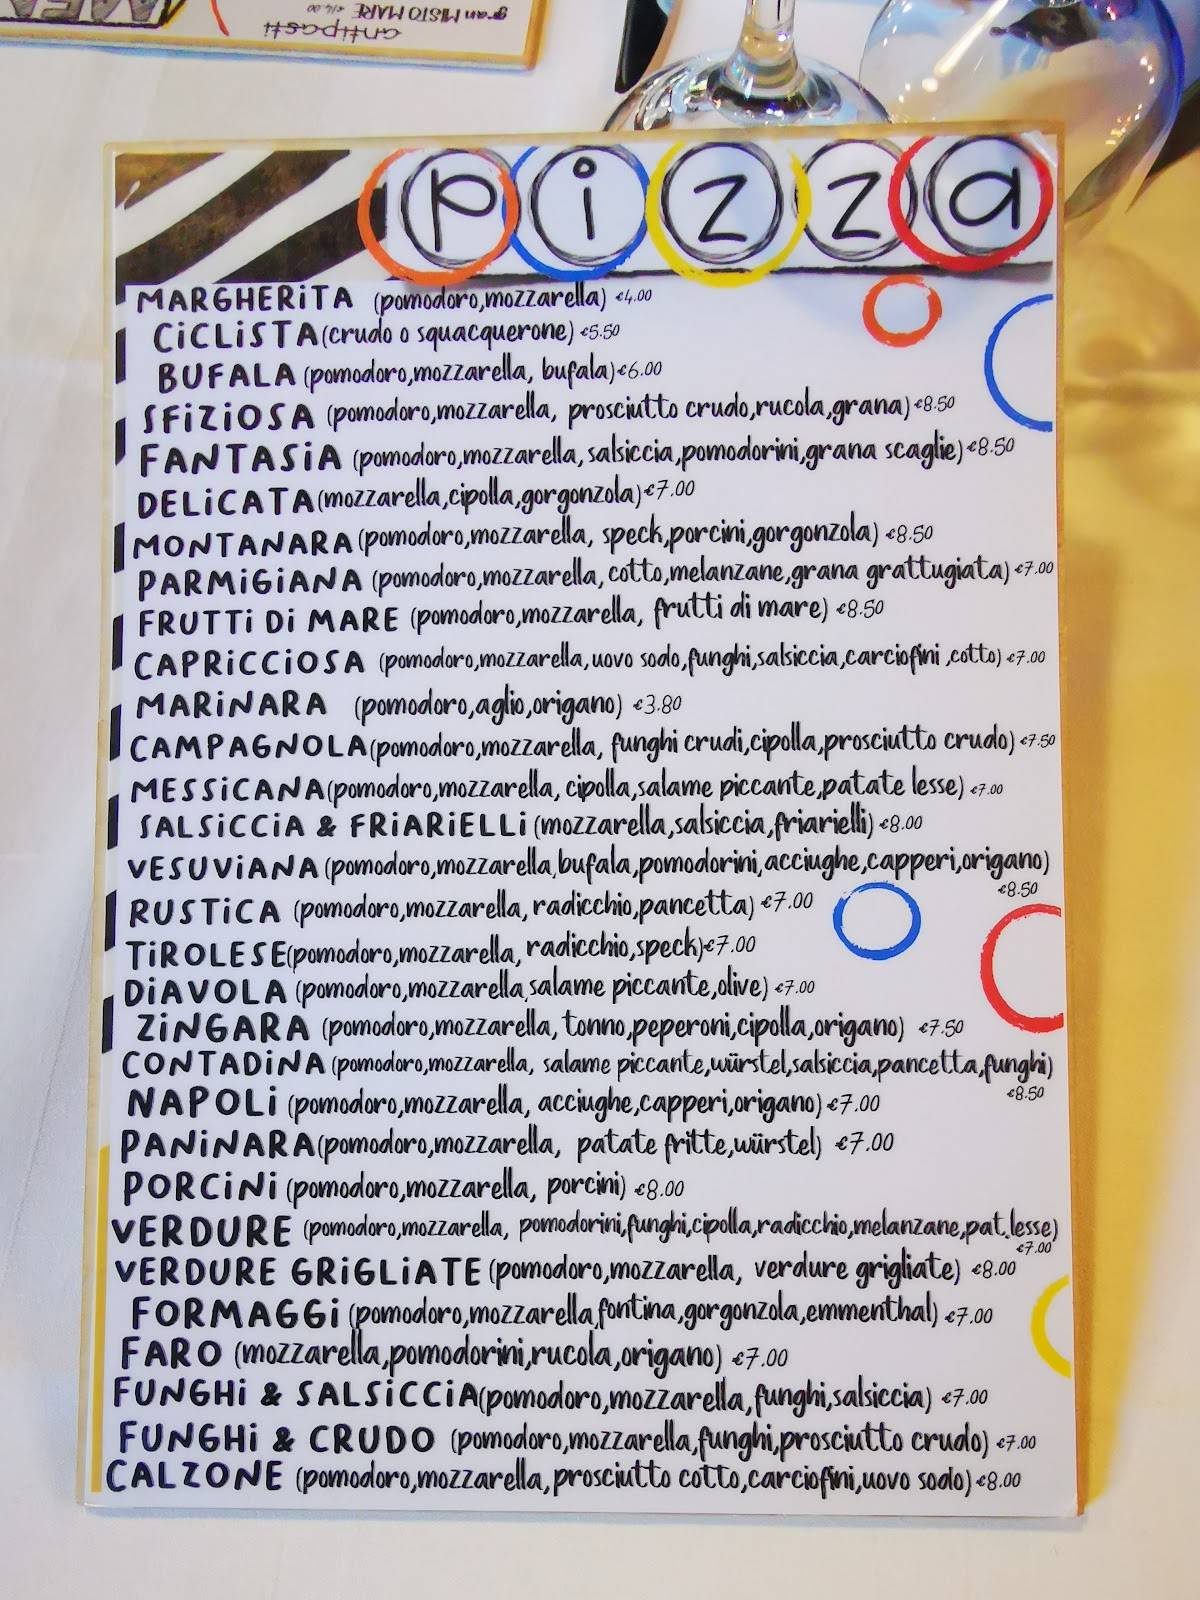 antipasti
gran MISTO MARE €14.00
pizza
MARGHERiTA (pomodoro,mozzarella) €4.00
CiCLiSTA(crudo o squacquerone) €5.50
BUFALA (pomodoro,mozzarella, bufala)€6.00
SFiZiOSA (pomodoro,mozzarella, prosciutto crudo,rucola,grana)€8.50
FANTASiA (pomodoro,mozzarella,salsiccia,pomodorini,grana scaglie)€8.50
DELiCATA(mozzarella,cipolla,gorgonzola)€7.00
MONTANARA(pomodoro,mozzarella, speck,porcini,gorgonzola) €8.50
PARMiGiANA (pomodoro,mozzarella,cotto,melanzane,grana grattugiata)€7.00
FRUTTi Di MARE (pomodoro,mozzarella, frutti di mare) €8.50
CAPRiCCiOSA (pomodoro,mozzarella,uovo sodo,funghi,salsiccia,carciofini ,cotto)€7.00
MARiNARA (pomodoro,aglio,origano) €3.80
CAMPAGNOLA(pomodoro,mozzarella, funghi crudi,cipolla,prosciutto crudo)€7.50
MESSiCANA(pomodoro,mozzarella, cipolla,salame piccante,patate lesse) €7.00
SALSiCCiA & FRiARiELLi(mozzarella,salsiccia,friarielli)€8.00
VESUViANA(pomodoro,mozzarella,bufala,pomodorini,acciughe,capperi,origano)
€8.50
RUSTiCA (pomodoro,mozzarella, radicchio,pancetta) €7.00
TiROLESE(pomodoro,mozzarella, radicchio,speck)€7.00
DiAVOLA (pomodoro,mozzarella,salame piccante,olive) €7.00
ZiNGARA (pomodoro,mozzarella, tonno,peperoni,cipolla,origano) €7.50
CONTADiNA (pomodoro,mozzarella, salame piccante,würstel,salsiccia,pancetta,funghi)
€8.50
NAPOLi (pomodoro,mozzarella, acciughe,capperi,origano)€7.00
PANiNARA(pomodoro,mozzarella, patate fritte,würstel) €7.00
PORCiNi (pomodoro,mozzarella, porcini) €8.00
VERDURE (pomodoro,mozzarella, pomodorini,funghi,cipolla,radicchio,melanzane,pat.lesse)
€7.00
VERDURE GRiGLiATE (pomodoro,mozzarella, verdure grigliate) €8.00
FORMAGGi (pomodoro,mozzarella,fontina,gorgonzola,emmenthal) €7.00
FARO (mozzarella,pomodorini,rucola,origano) €7.00
FUNGHi & SALSiCCiA(pomodoro,mozzarella,funghi,salsiccia) €7.00
FUNGHi & CRUDO (pomodoro,mozzarella,funghi,prosciutto crudo) €7.00
CALZONE (pomodoro,mozzarella,prosciutto cotto,carciofini,uovo sodo)€8.00